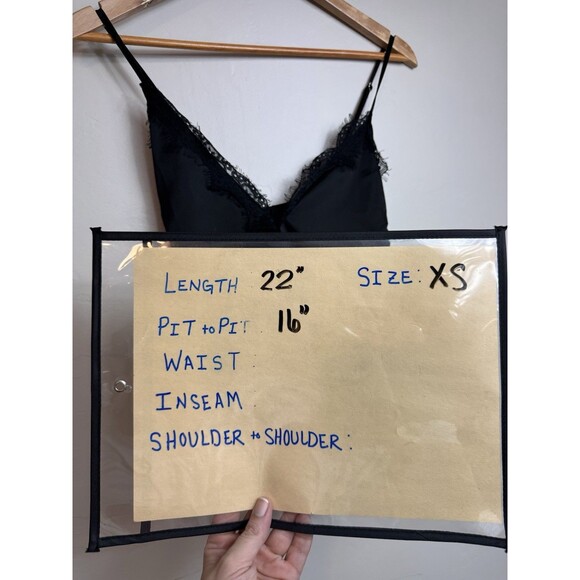 LENGTH 22" SIZE: XS
PIT to PIT 16"
WAIST :
INSEAM :
SHOULDER to SHOULDER :